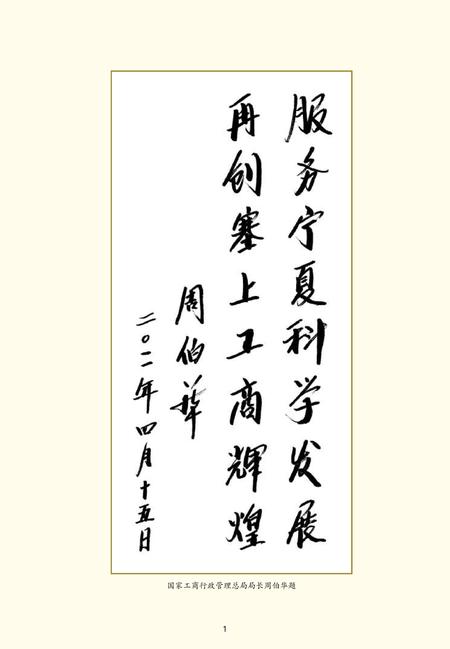 服务宁夏科学发展
再创塞上工商辉煌
周伯华
二〇一一年四月十五日
国家工商行政管理总局局长周伯华题
1